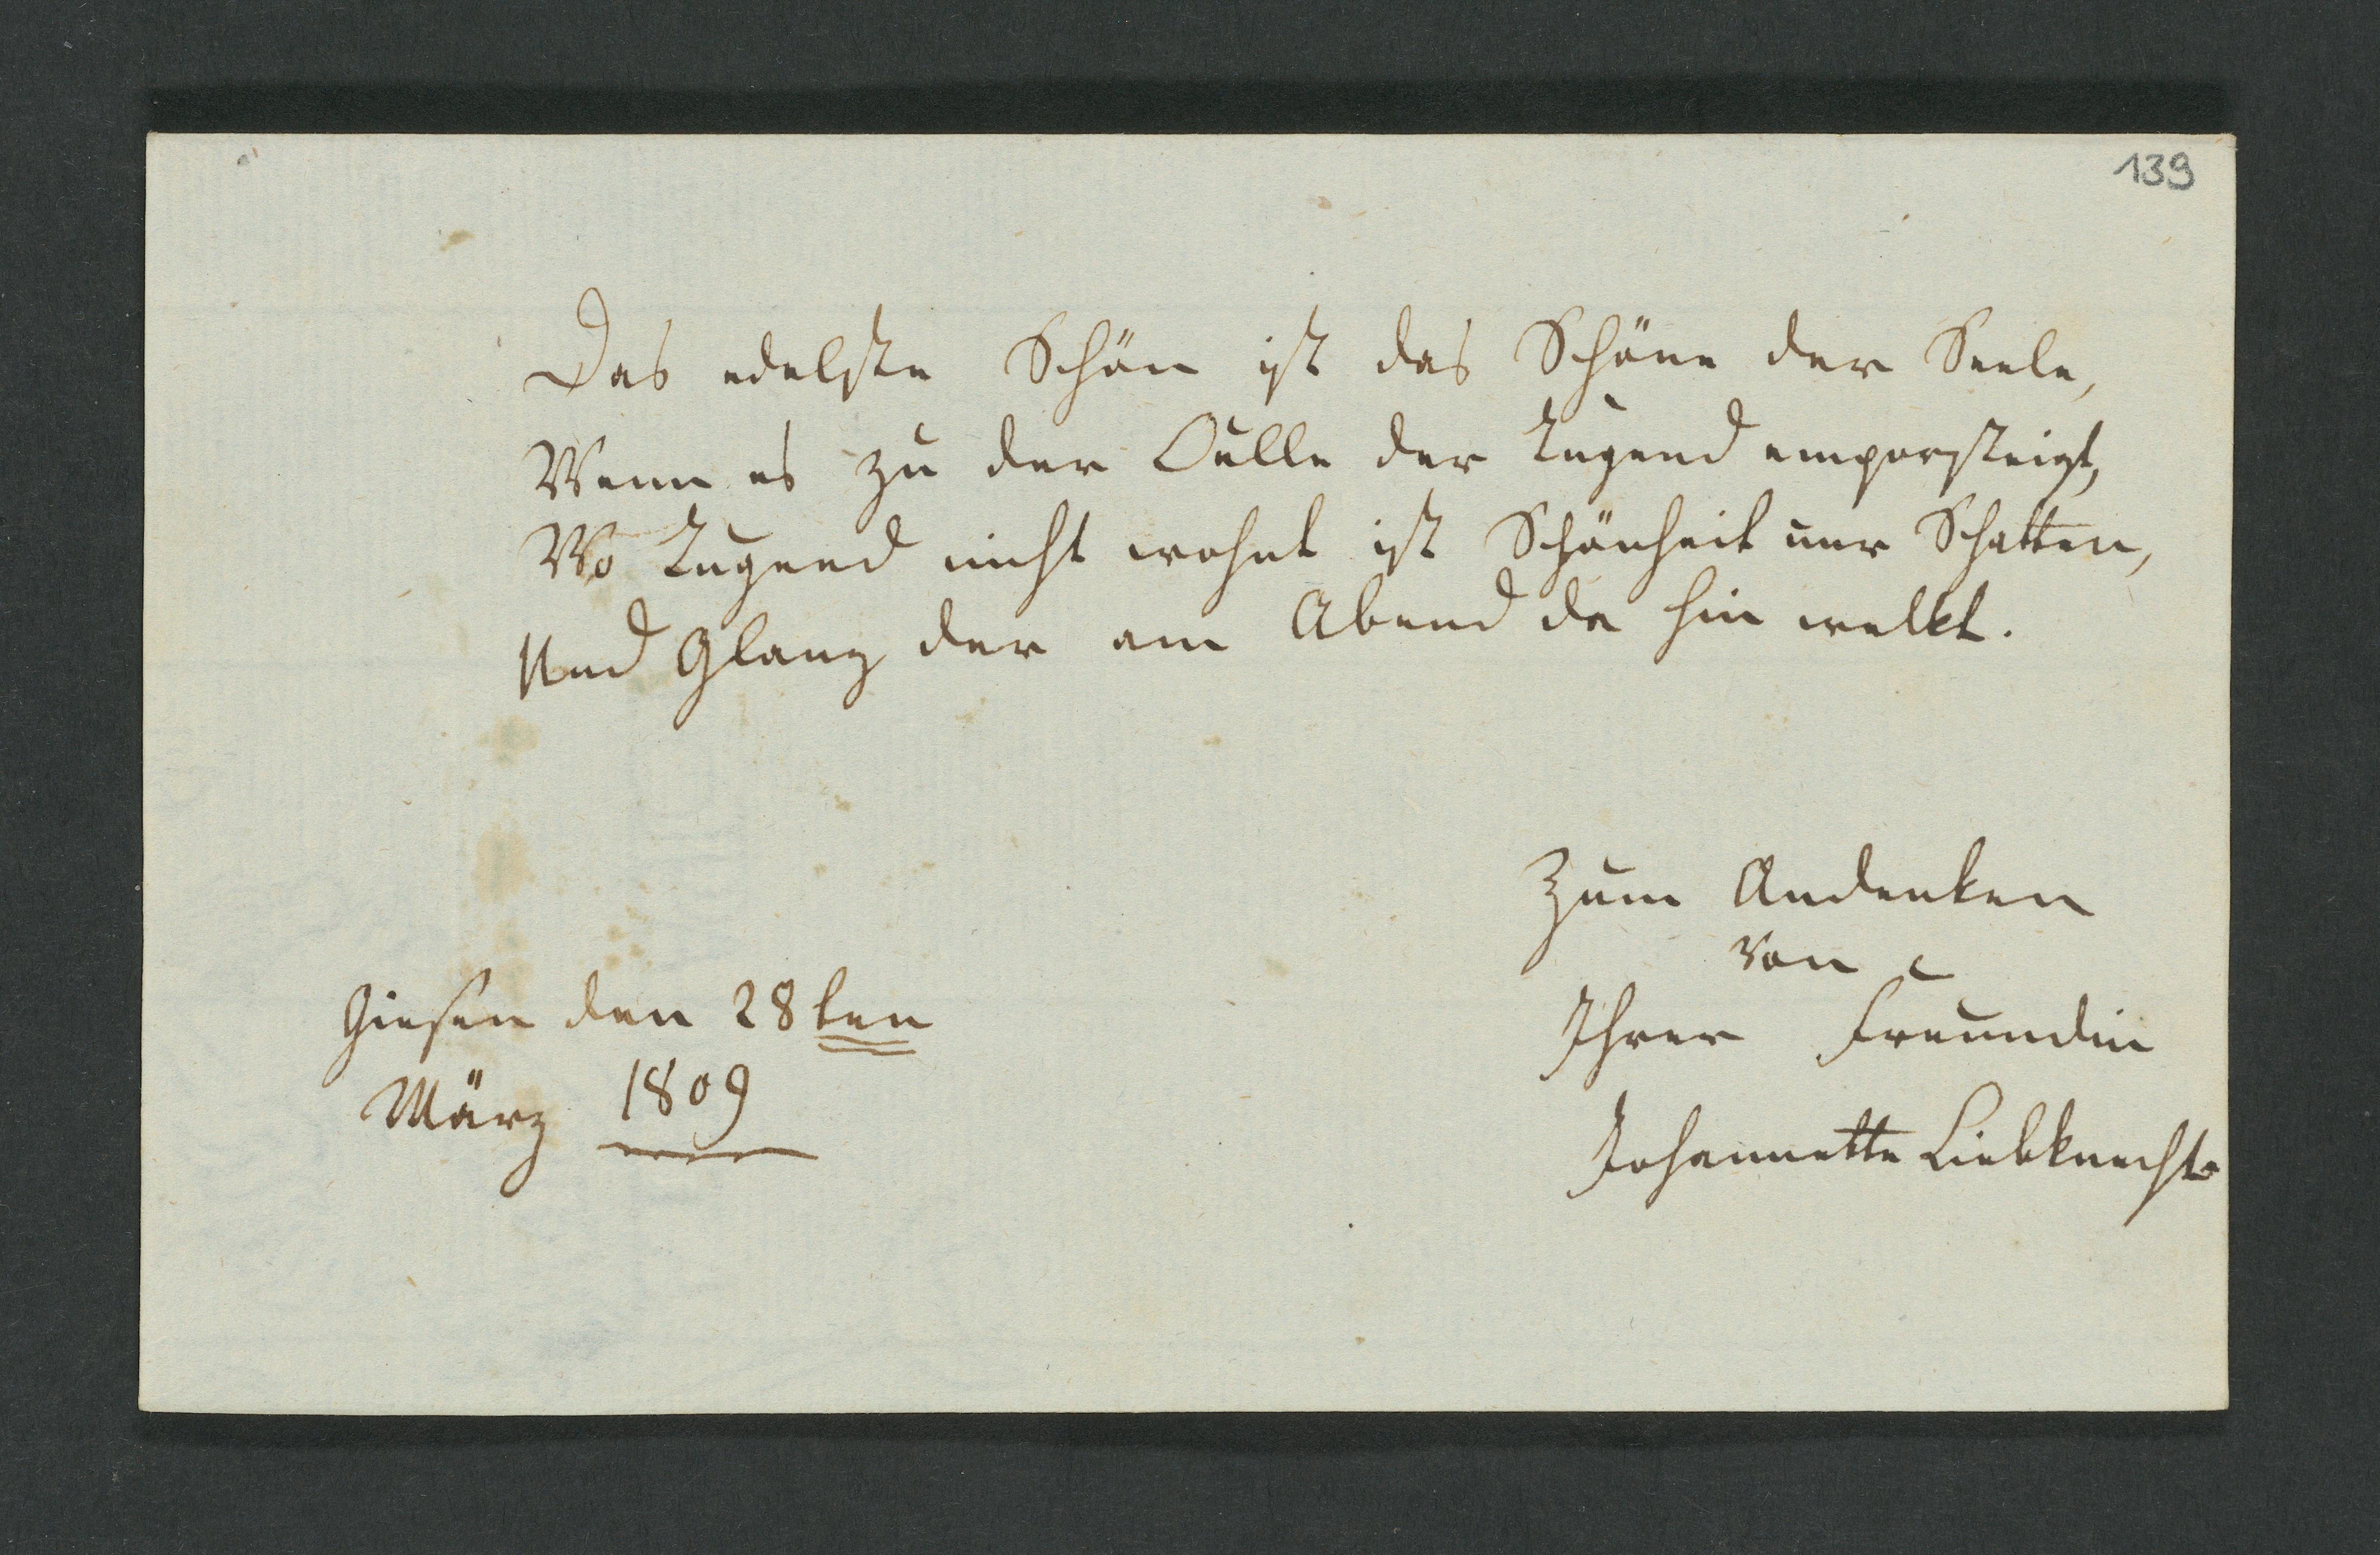 139
Das edelste Schön ist das Schöne der Seele,
Wenn es zu der Qulle der Tugend emporsteigt,
Wo Tugend nicht wohnt ist Schönheit nur Schatten,
Und Glanz der am Abend da hin welkt.
Zum Andenken
von
Giesen den 28ten
Ihrer Freundin
März 1809
Johannette Liebknecht